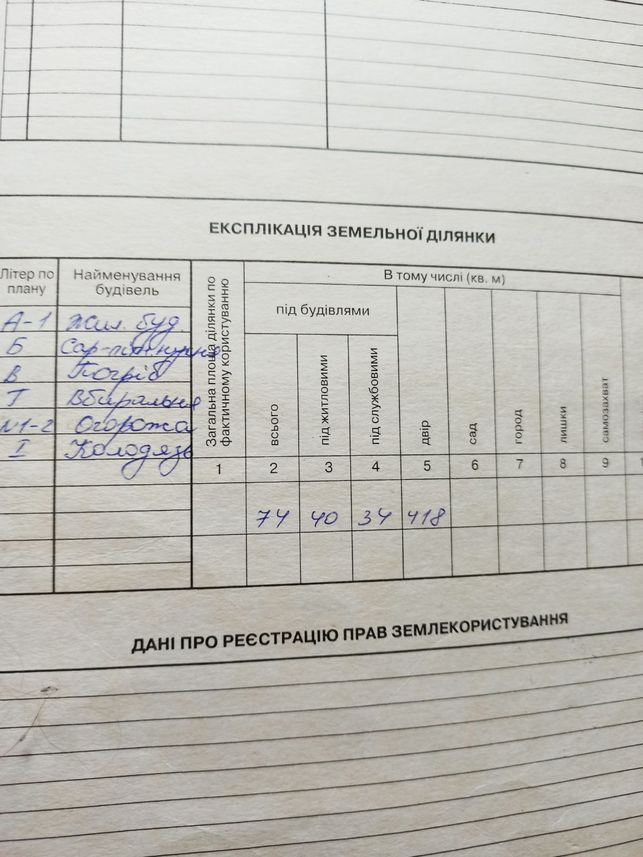 ЕКСПЛІКАЦІЯ ЗЕМЕЛЬНОЇ ДІЛЯНКИ
Літер по плану
Найменування будівель
Загальна площа ділянки по фактичному користуванню
В тому числі (кв. м)
під будівлями
всього
під житловими
під службовими
двір
сад
город
лишки
самозахват
1 2 3 4 5 6 7 8 9
А-1 Жил. буд.
Б
В Погріб
Т Вбиральня
№1-2 Огорожа
І Колодязь
74 40 34 418
ДАНІ ПРО РЕЄСТРАЦІЮ ПРАВ ЗЕМЛЕКОРИСТУВАННЯ